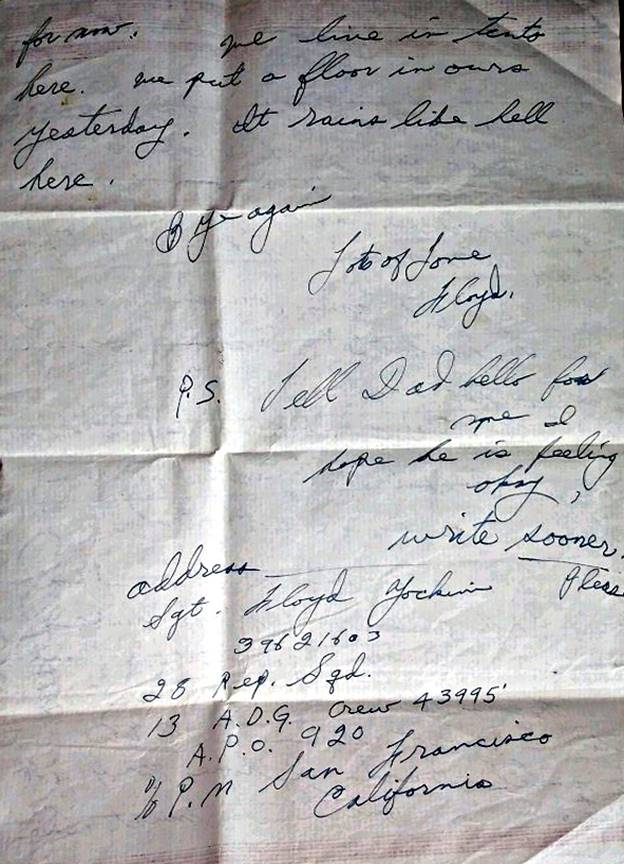 for now. we live in tents
here. we put a floor in ours
yesterday. It rains like hell
here.
Bye again
Lots of Love
Floyd.
P.S. Tell Dad hello for
me I
hope he is feeling
okay,
write sooner,
Please
address
Sgt. Floyd Yockim
39621603
28 Rep. Sqd.
13 A.D.G. Crew 43995
A.P.O. 920
c/o P.M San Francisco
California